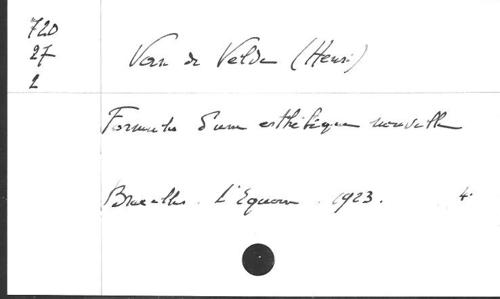 720
27
2
Van de Velde (Henri)
Formules d'une esthétique nouvelle
Bruxelles. L'Equerre. 1923. 4.